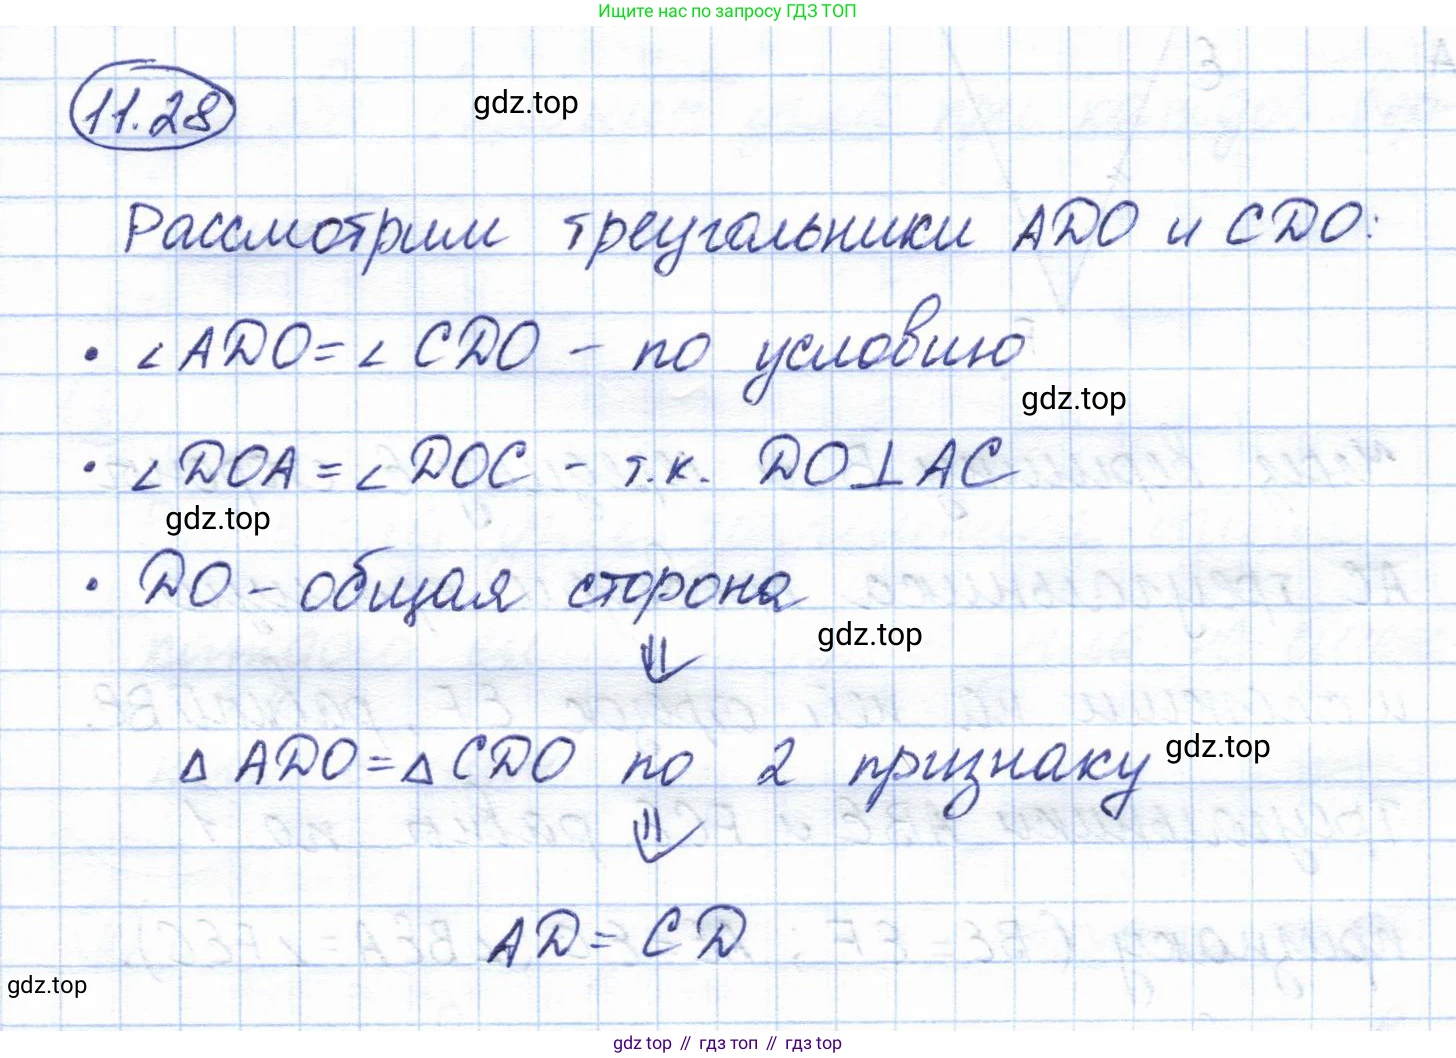 Ищите нас по запросу ГДЗ ТОП
11.28
gdz.top
Рассмотрим треугольники ADO и CDO:
• ∠ADO = ∠CDO – по условию
gdz.top
• ∠DOA = ∠DOC – т.к. DO⊥AC
gdz.top
• DO – общая сторона
gdz.top
⇓
△ADO = △CDO по 2 признаку
gdz.top
⇓
AD = CD
gdz.top
gdz top // гдз топ // gdz top